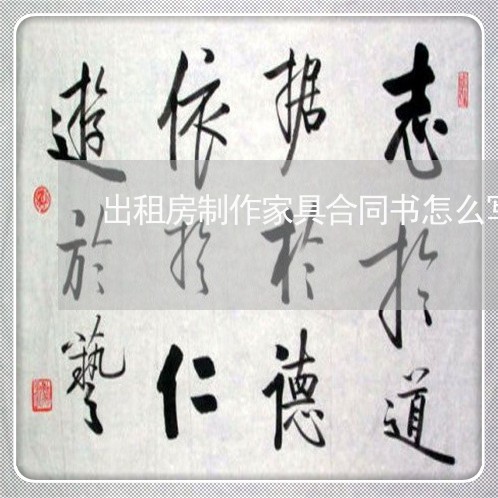 志於道
据於德
依於仁
遊於藝
出租房制作家具合同书怎么